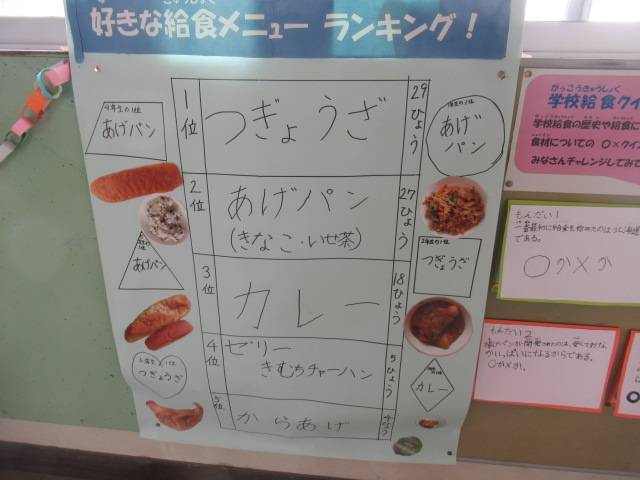 好きな給食メニュー ランキング！
1位 つぎょうざ 29ひょう
2位 あげパン 27ひょう
(きなこ・いせ茶)
3位 カレー 18ひょう
4位 ゼリー 5ひょう
きむちチャーハン
5位 からあげ
4年生の1位
あげパン
あげパン
1位
つぎょうざ
あげ
パン
2年生の1位
つぎょうざ
カレー
がっこうきゅうしょく
学校給食クイ
学校給食の歴史や給食に
食材についての ○×クイ
みなさんチャレンジしてみて
もんだい1
一番最初に給食を始めたのは北海道
である。
○か×か
もんだい2
揚げパンが開発されたのは、安くておな
かいっぱいになるからである。
○か×か。